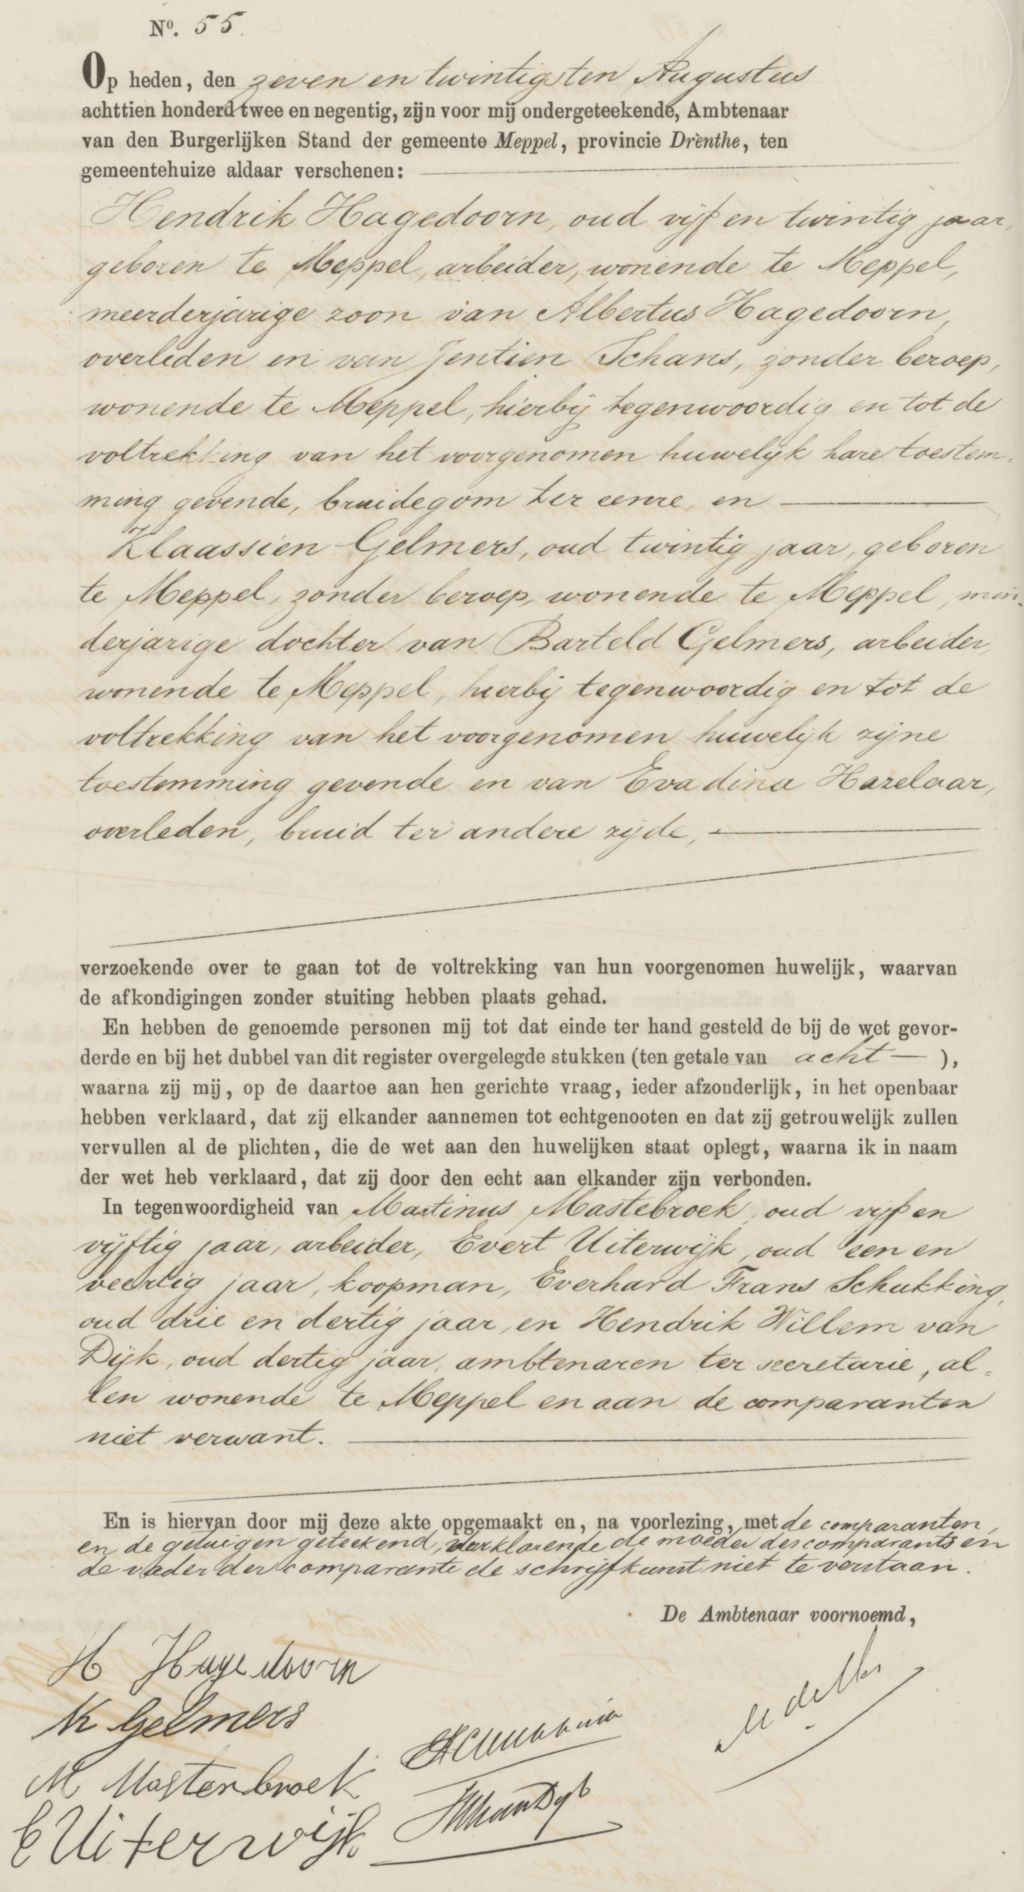 Nº. 55.
Op heden, den zeven en twintigsten Augustus
achttien honderd twee en negentig, zijn voor mij ondergeteekende, Ambtenaar
van den Burgerlijken Stand der gemeente Meppel, provincie Drenthe, ten
gemeentehuize aldaar verschenen:
Hendrik Hagedoorn, oud vijf en twintig jaar,
geboren te Meppel, arbeider, wonende te Meppel,
meerderjarige zoon van Albertus Hagedoorn,
overleden en van Jentien Schans, zonder beroep,
wonende te Meppel, hierbij tegenwoordig en tot de
voltrekking van het voorgenomen huwelijk hare toestem-
ming gevende, bruidegom ter eenre, en
Klaassien Gelmers, oud twintig jaar, geboren
te Meppel, zonder beroep, wonende te Meppel, min-
derjarige dochter van Barteld Gelmers, arbeider,
wonende te Meppel, hierbij tegenwoordig en tot de
voltrekking van het voorgenomen huwelijk zijne
toestemming gevende en van Evadina Hazelaar,
overleden, bruid ter andere zijde,
verzoekende over te gaan tot de voltrekking van hun voorgenomen huwelijk, waarvan
de afkondigingen zonder stuiting hebben plaats gehad.
En hebben de genoemde personen mij tot dat einde ter hand gesteld de bij de wet gevor-
derde en bij het dubbel van dit register overgelegde stukken (ten getale van acht — ),
waarna zij mij, op de daartoe aan hen gerichte vraag, ieder afzonderlijk, in het openbaar
hebben verklaard, dat zij elkander aannemen tot echtgenooten en dat zij getrouwelijk zullen
vervullen al de plichten, die de wet aan den huwelijken staat oplegt, waarna ik in naam
der wet heb verklaard, dat zij door den echt aan elkander zijn verbonden.
In tegenwoordigheid van Martinus Mastebroek, oud vijf en
vijftig jaar, arbeider, Evert Uiterwijk, oud een en
veertig jaar, koopman, Everhard Frans Schukking,
oud drie en dertig jaar, en Hendrik Willem van
Dijk, oud dertig jaar, ambtenaren ter secretarie, al-
len wonende te Meppel en aan de comparanten
niet verwant.
En is hiervan door mij deze akte opgemaakt en, na voorlezing, met de comparanten,
en de getuigen geteekend, verklarende de moeder des comparants en
de vader der comparante de schrijfkunst niet te verstaan.
De Ambtenaar voornoemd,
H Hagedoorn
K Gelmers
M Mastenbroek
E Uiterwijk
HWvanDijk